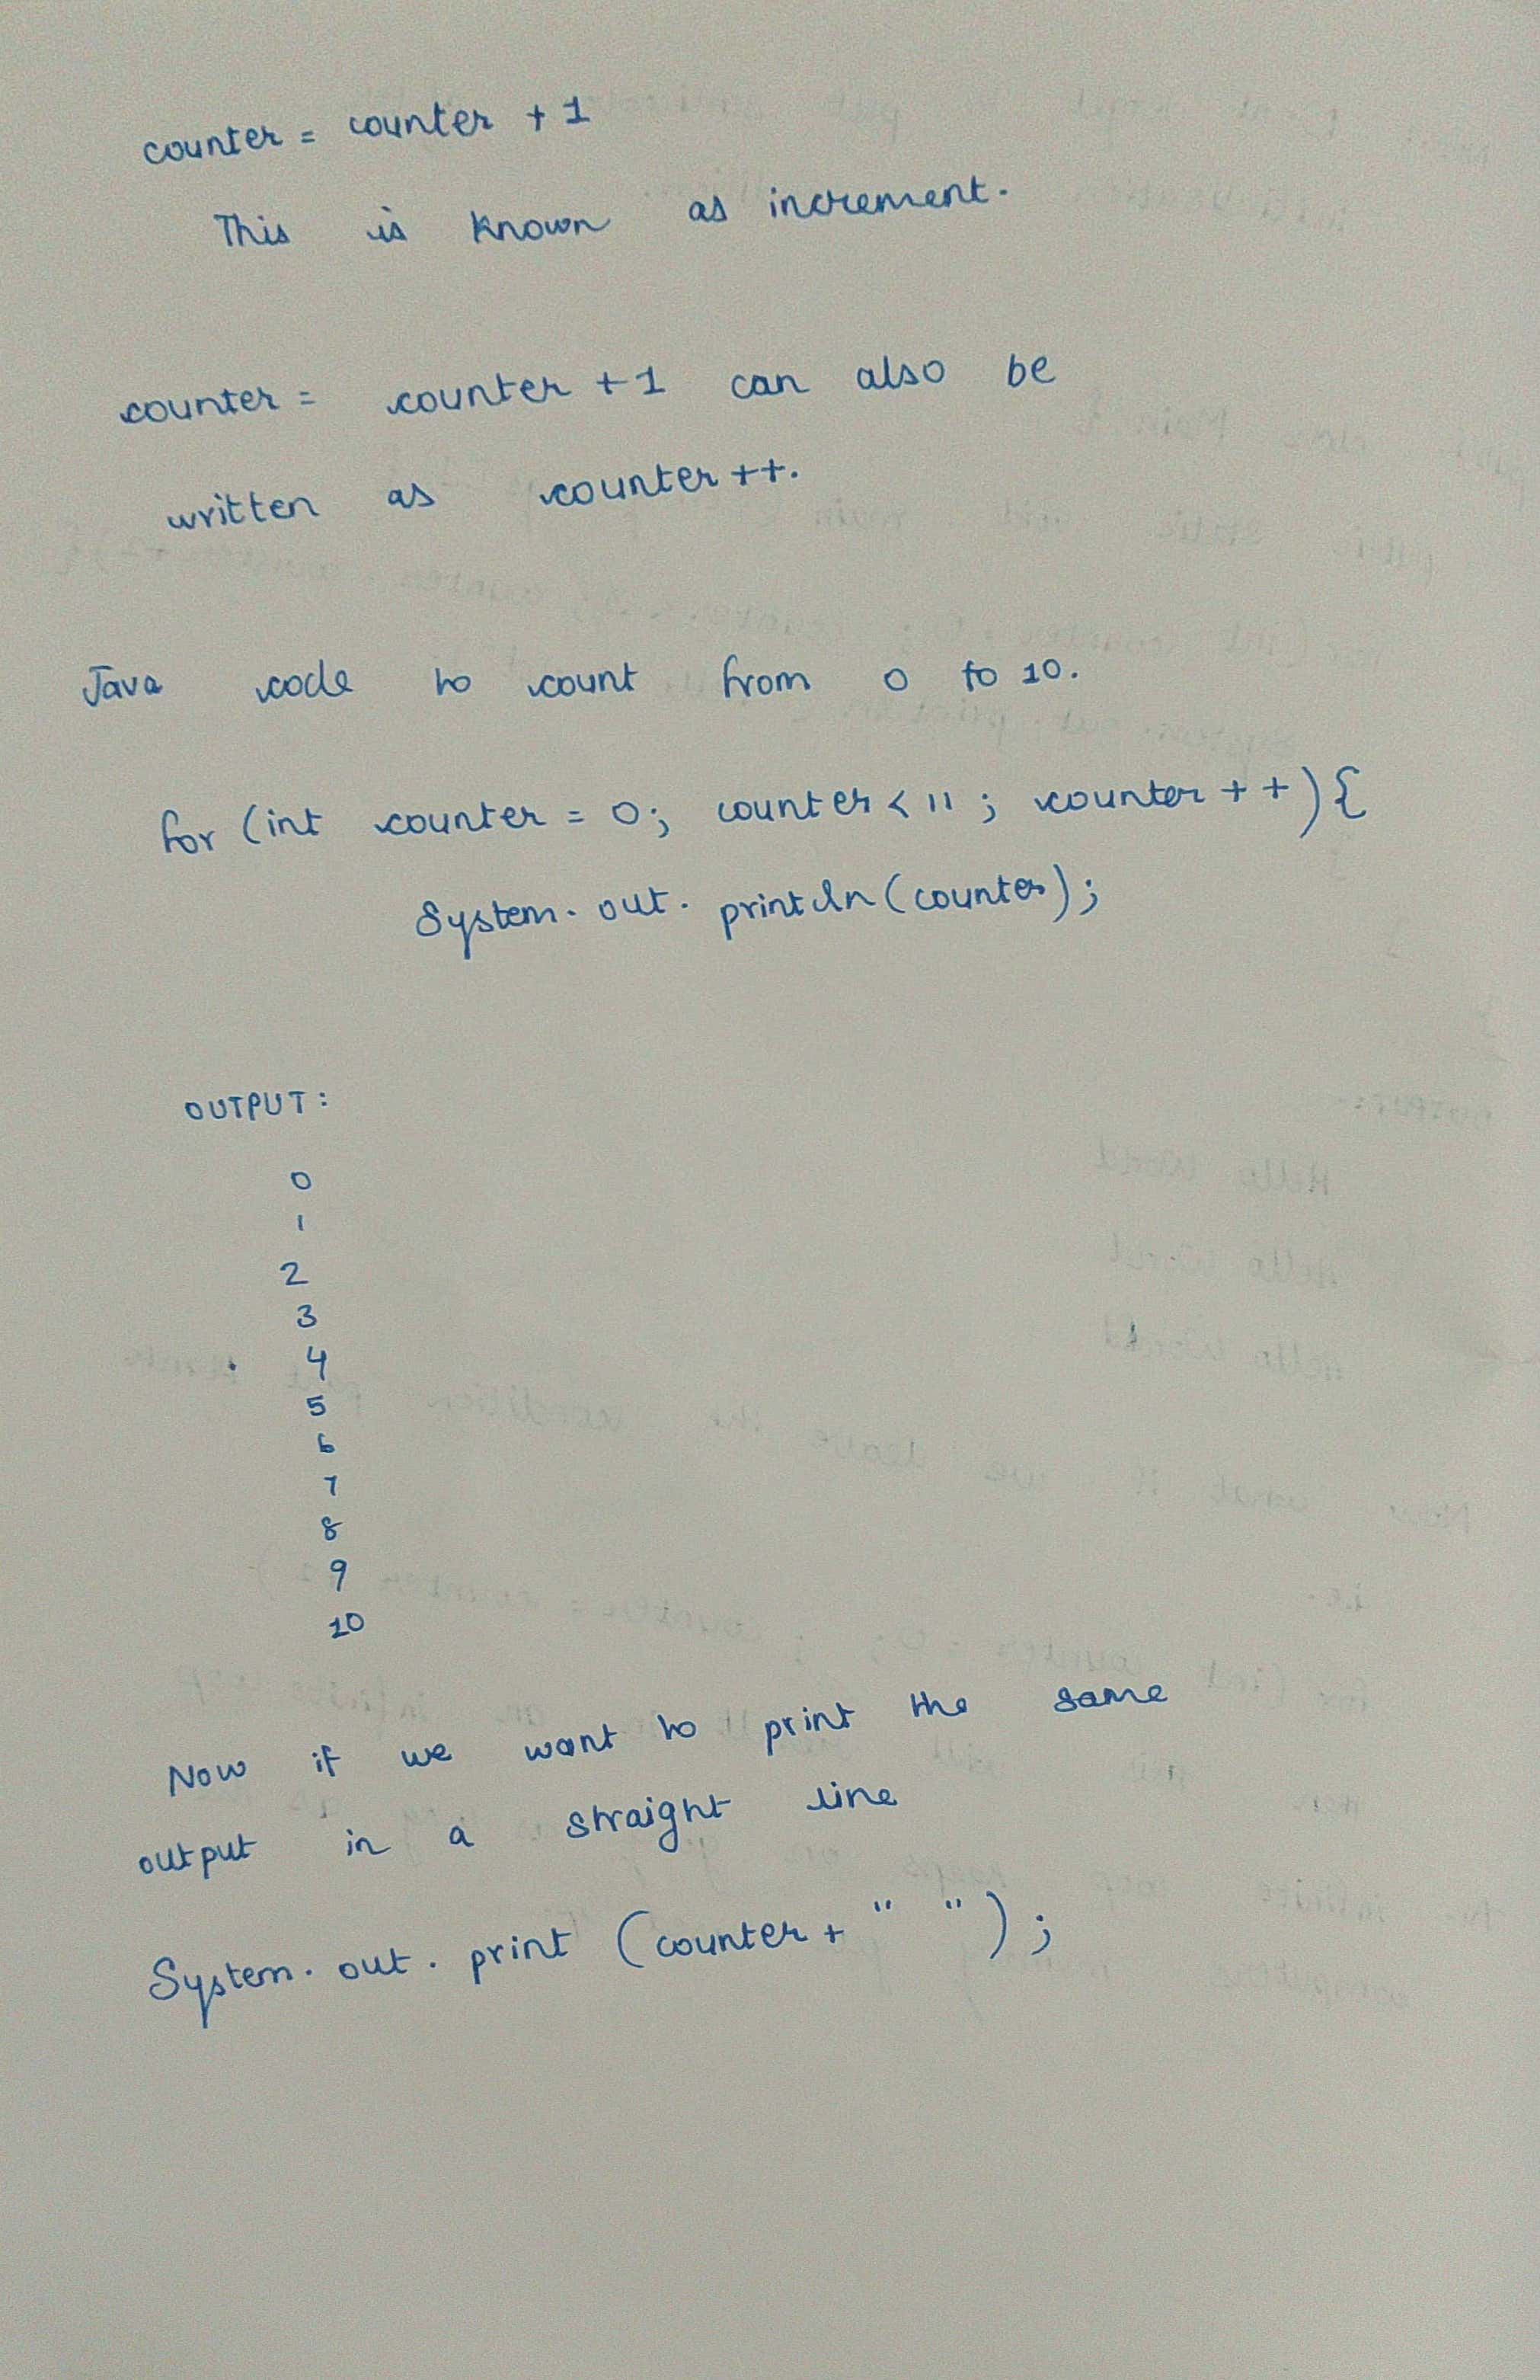 counter = counter + 1
This is known as increment.
counter = counter + 1 can also be
written as counter ++.
Java code to count from 0 to 10.
for (int counter = 0; counter < 11 ; counter + +) {
System. out. println (counter);
OUTPUT:
0
1
2
3
4
5
6
7
8
9
10
Now if we want to print the same
output in a straight line
System. out. print (counter + " ");